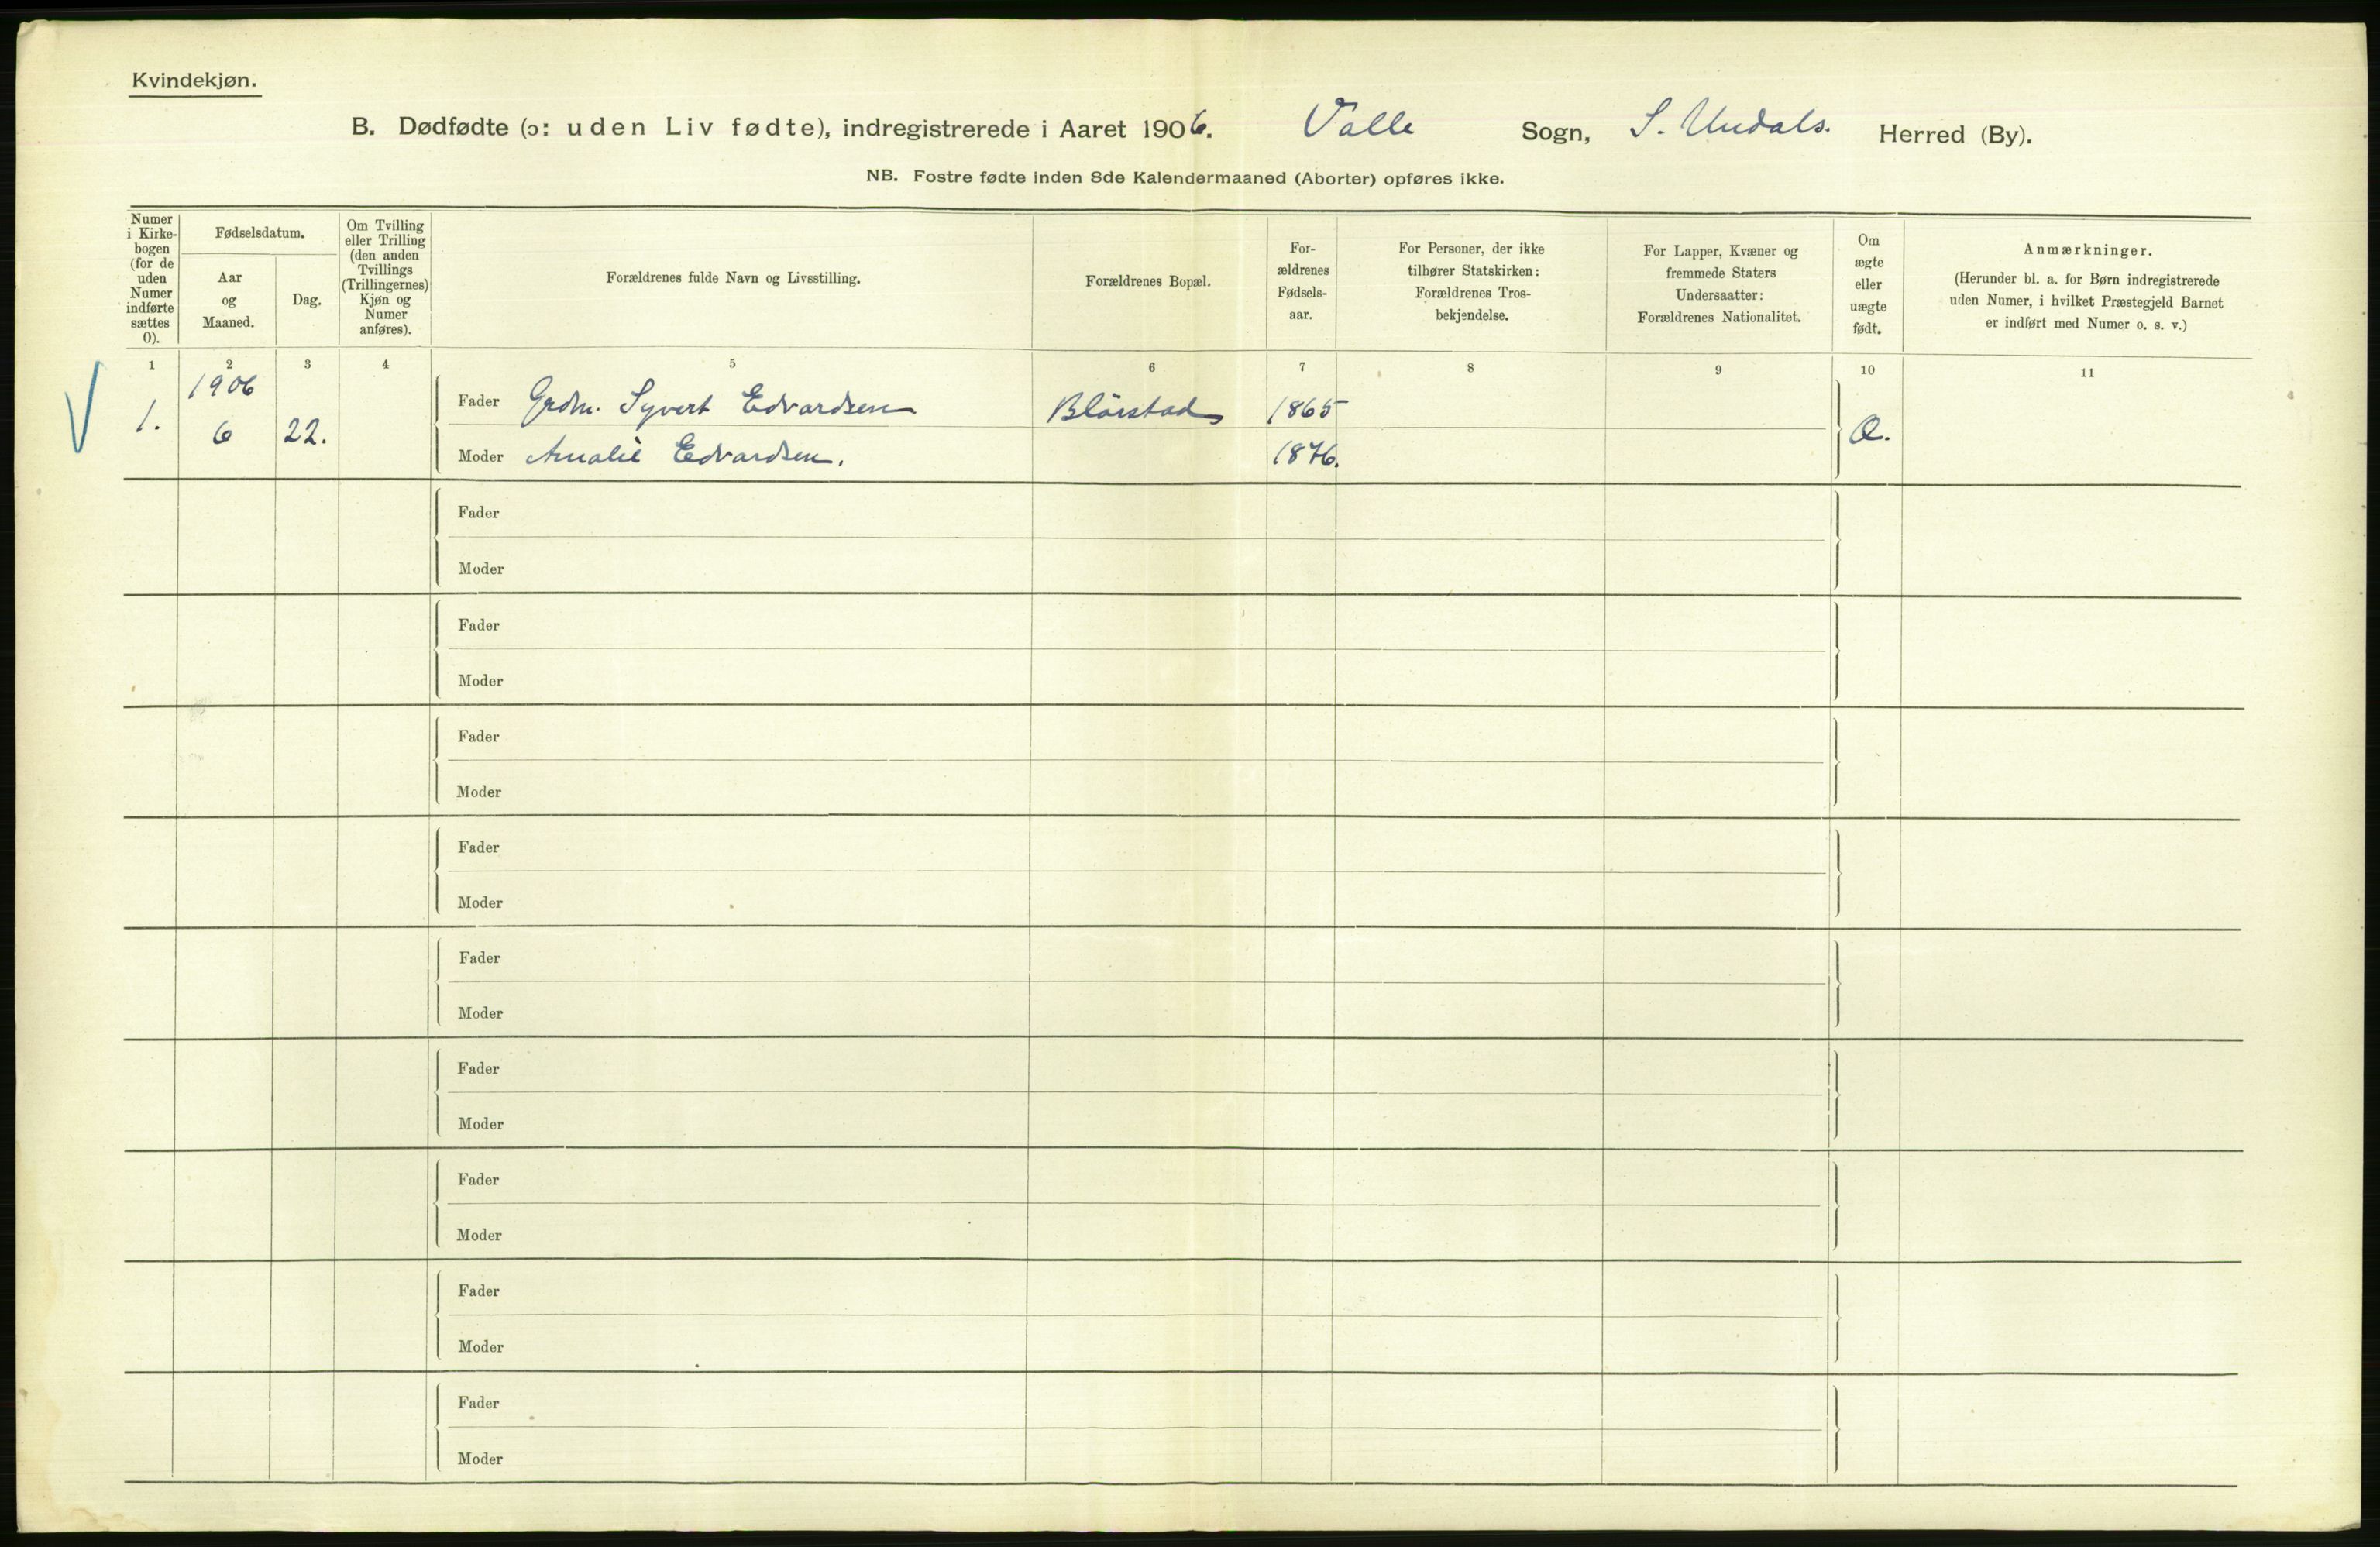 Kvindekjøn.
B. Dødfødte (ɔ: uden Liv fødte), indregistrerede i Aaret 1906. Valle Sogn, S. Undals. Herred (By).
NB. Fostre fødte inden 8de Kalendermaaned (Aborter) opføres ikke.
Numer
i Kirke-
bogen
(for de
uden
Numer
indførte
sættes
0).
Fødselsdatum.
Aar
og
Maaned.
Dag.
Om Tvilling
eller Trilling
(den anden
Tvillings
(Trillingernes)
Kjøn og
Numer
anføres).
Forældrenes fulde Navn og Livsstilling.
Forældrenes Bopæl.
For-
ældrenes
Fødsels-
aar.
For Personer, der ikke
tilhører Statskirken:
Forældrenes Tros-
bekjendelse.
For Lapper, Kvæner og
fremmede Staters
Undersaatter:
Forældrenes Nationalitet.
Om
ægte
eller
uægte
født.
Anmærkninger.
(Herunder bl. a. for Børn indregistrerede
uden Numer, i hvilket Præstegjeld Barnet
er indført med Numer o. s. v.)
1 2 3 4 5 6 7 8 9 10 11
1906
1. 6 22.
Fader Grdm. Syvert Edvardsen Blørstad 1865
Moder Amalie Edvardsen. 1876.
Fader
Moder
Fader
Moder
Fader
Moder
Fader
Moder
Fader
Moder
Fader
Moder
Fader
Moder
Fader
Moder
Fader
Moder